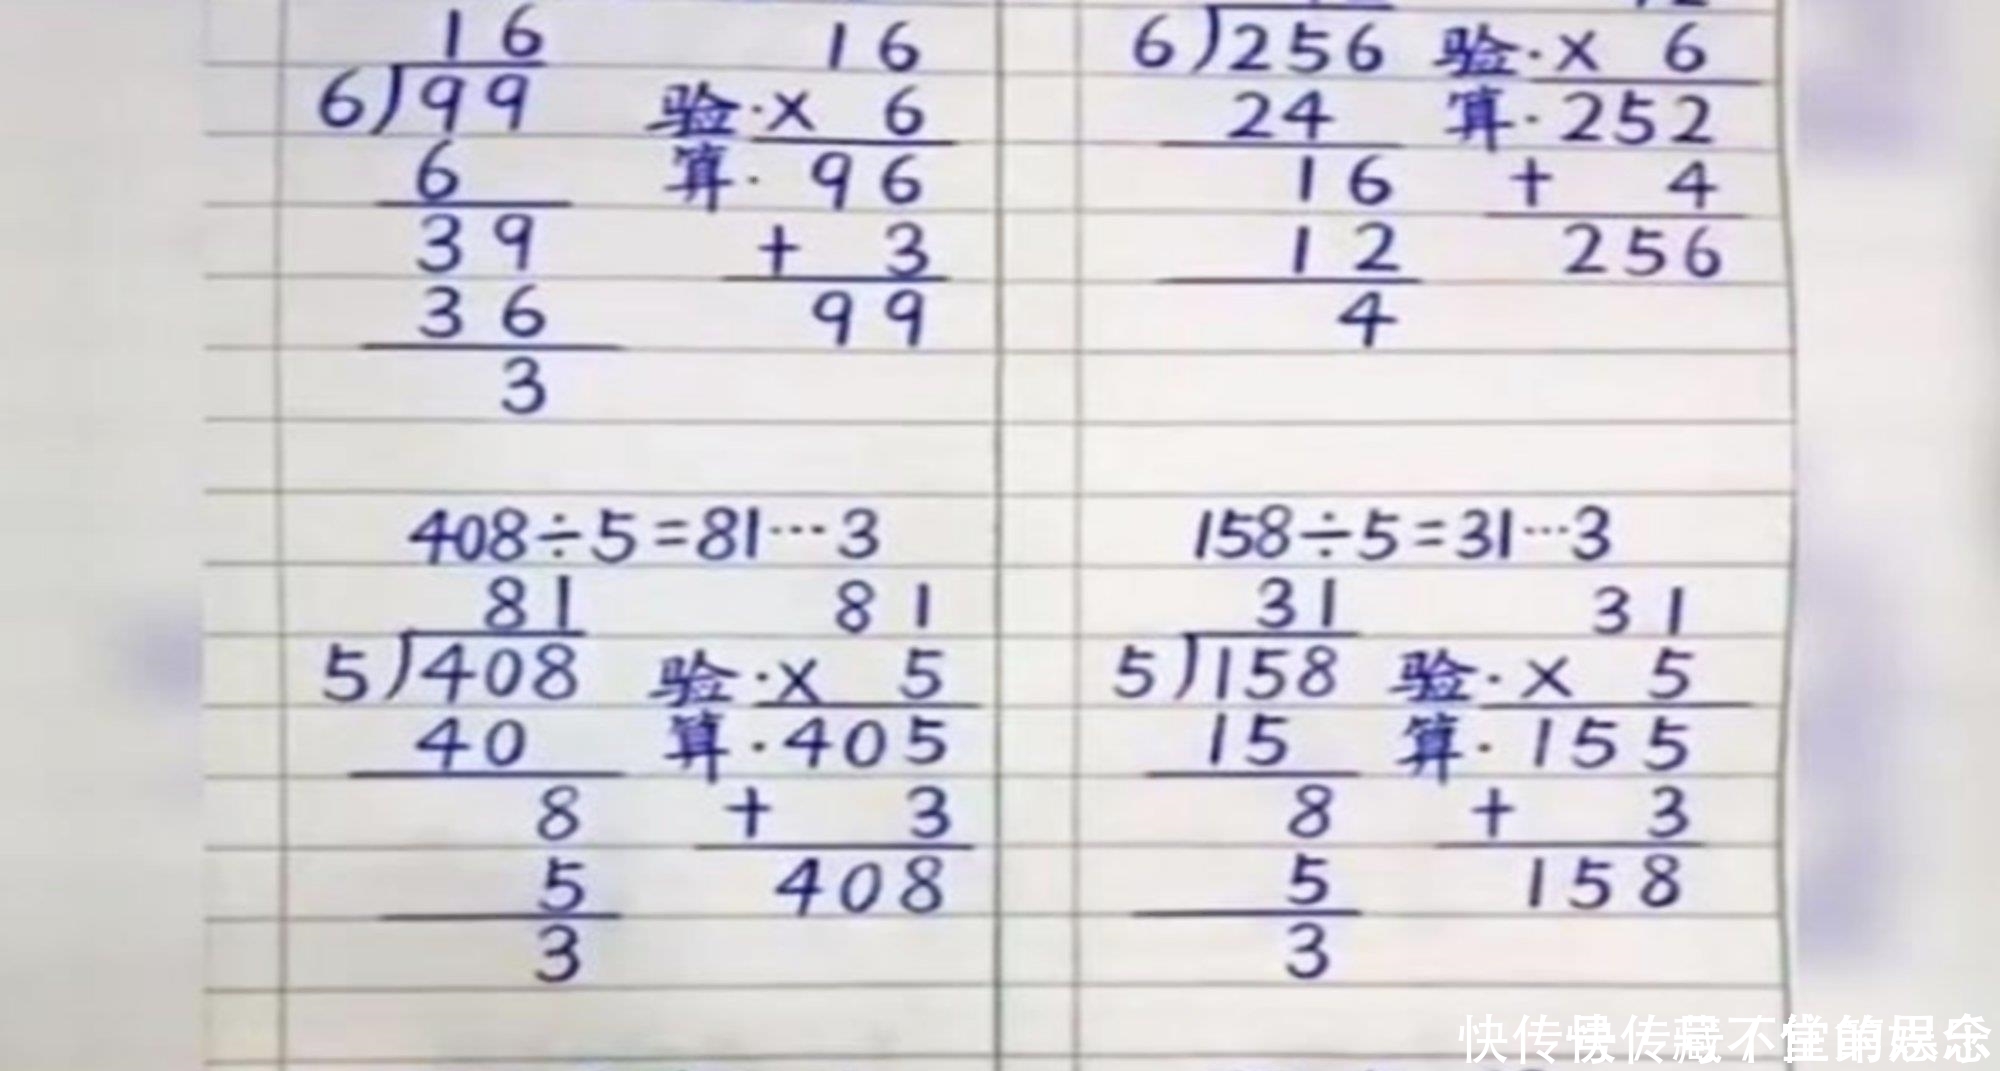 16
6)99
6
39
36
3
16
验·× 6
算· 96
+ 3
99
6)256
24
16
12
4
验·× 6
算·252
+ 4
256
408÷5=81…3
81
5)408
40
8
5
3
81
验·× 5
算·405
+ 3
408
158÷5=31…3
31
5)158
15
8
5
3
31
验·× 5
算·155
+ 3
158